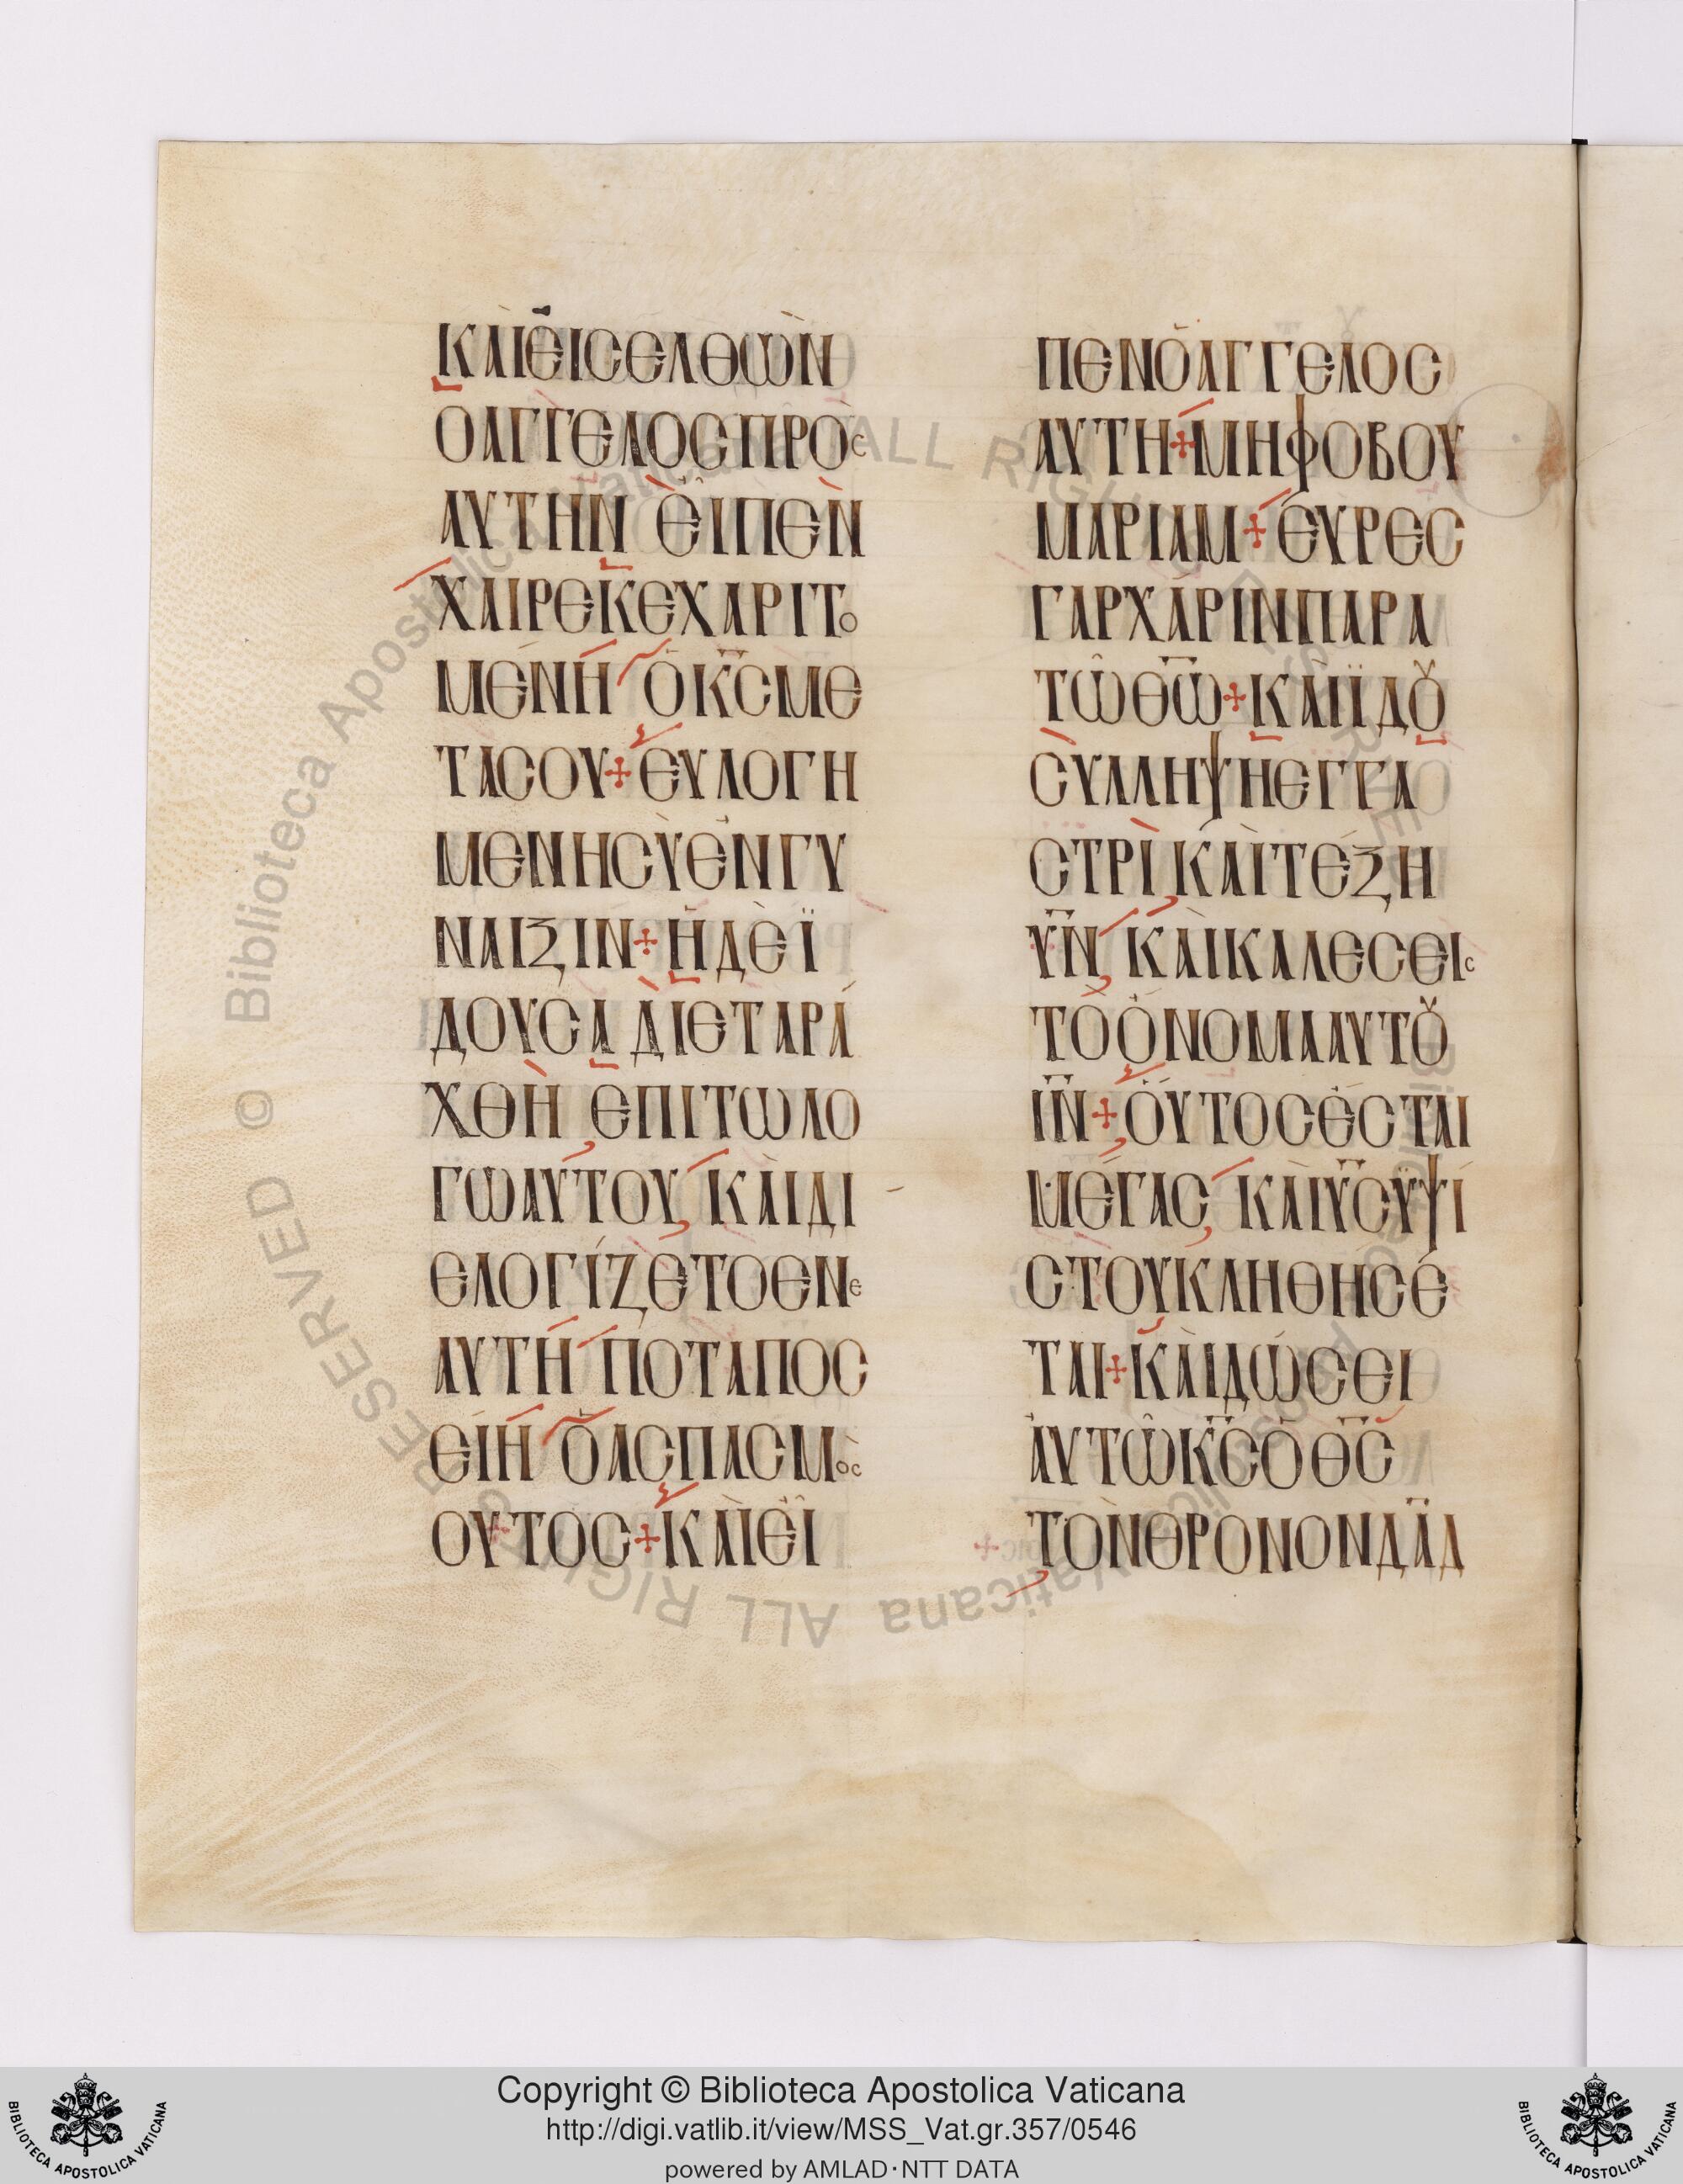 ΚΑῚΕἸΣΕΛΘῺΝ
ὉΑΓΓΕΛΟΣΠΡΟΣ
ΑΥΤΗΝ ΕἾΠΕΝ
ΧΑΙΡΕΚΕΧΑΡΙΤΟ
ΜΈΝΗ ὉΚ̅Σ̅ΜΕ
ΤΑΣΟΥ+ΕΥΛΟΓΗ
ΜΕΝΗΣῪἘΝΓΥ
ΝΑΙΞΙΝ+ἩΔῈΪ
ΔΟΥΣΑ ΔΙΕΤΑΡΆ
ΧΘΗ ἘΠΙΤΩΛΟ
ΓΩΑΥΤΟΥ, ΚΑῚΔΙ
ΕΛΟΓΊΖΕΤΟΕΝΕ
ΑΥΤΗ ΠΟΤΑΠΟΣ
ΕΙΗ ὉΑΣΠΑΣΜΟΣ
ΟΥΤΟΣ+ΚΑῚΕἾ
ΠΕΝὉΑΓΓΕΛΟΣ
ΑΥΤΗ+ΜΗΦΟΒΟΥ
ΜΑΡΙΑΜ+ΕΥΡΕΣ
ΓΑΡΧΆΡΙΝΠΑΡΑ
ΤΩ͂Θ̅Ω̅+ΚΑῚΪΔΟΥ
ΣΥΛΛΗΨΗΕΓΓΑ
ΣΤΡῚ ΚΑῚΤΈΞΗ
Υ̅Ν̅, ΚΑῚΚΑΛΕΣΕΙΣ
ΤῸὌΝΟΜΑΑΥΤΟΥ
Ι̅Ν̅+ΟὟΤΟΣἘΣΤΑΙ
ΜΈΓΑΣ, ΚΑῚΥ̅Σ̅ΫΨΊ
ΣΤΟΥΚΛΗΘΗΣΈ
ΤΑΙ+ΚΑῚΔΏΣΕΙ
ἈΥΤΩ͂Κ̅Σ̅ὉΘ̅Σ̅
ΤῸΝΘΡΟΝΟΝΔ̅Α̅Δ̅
Copyright © Biblioteca Apostolica Vaticana
http://digi.vatlib.it/view/MSS_Vat.gr.357/0546
powered by AMLAD·NTT DATA
BIBLIOTECA APOSTOLICA VATICANA
BIBLIOTECA APOSTOLICA VATICANA
© Biblioteca Apostolica Vaticana ALL RIGHTS RESERVED
© Biblioteca Apostolica Vaticana ALL RIGHTS RESERVED